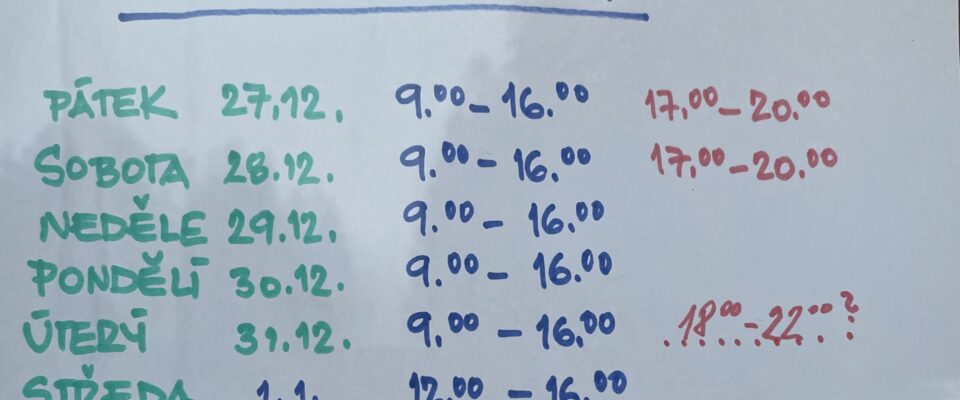 PÁTEK 27.12. 9.00 – 16.00 17.00 – 20.00
SOBOTA 28.12. 9.00 – 16.00 17.00 – 20.00
NEDĚLE 29.12. 9.00 – 16.00
PONDĚLÍ 30.12. 9.00 – 16.00
ÚTERÝ 31.12. 9.00 – 16.00 18 00 – 22 00 ?
STŘEDA 1.1. 12.00 – 16.00